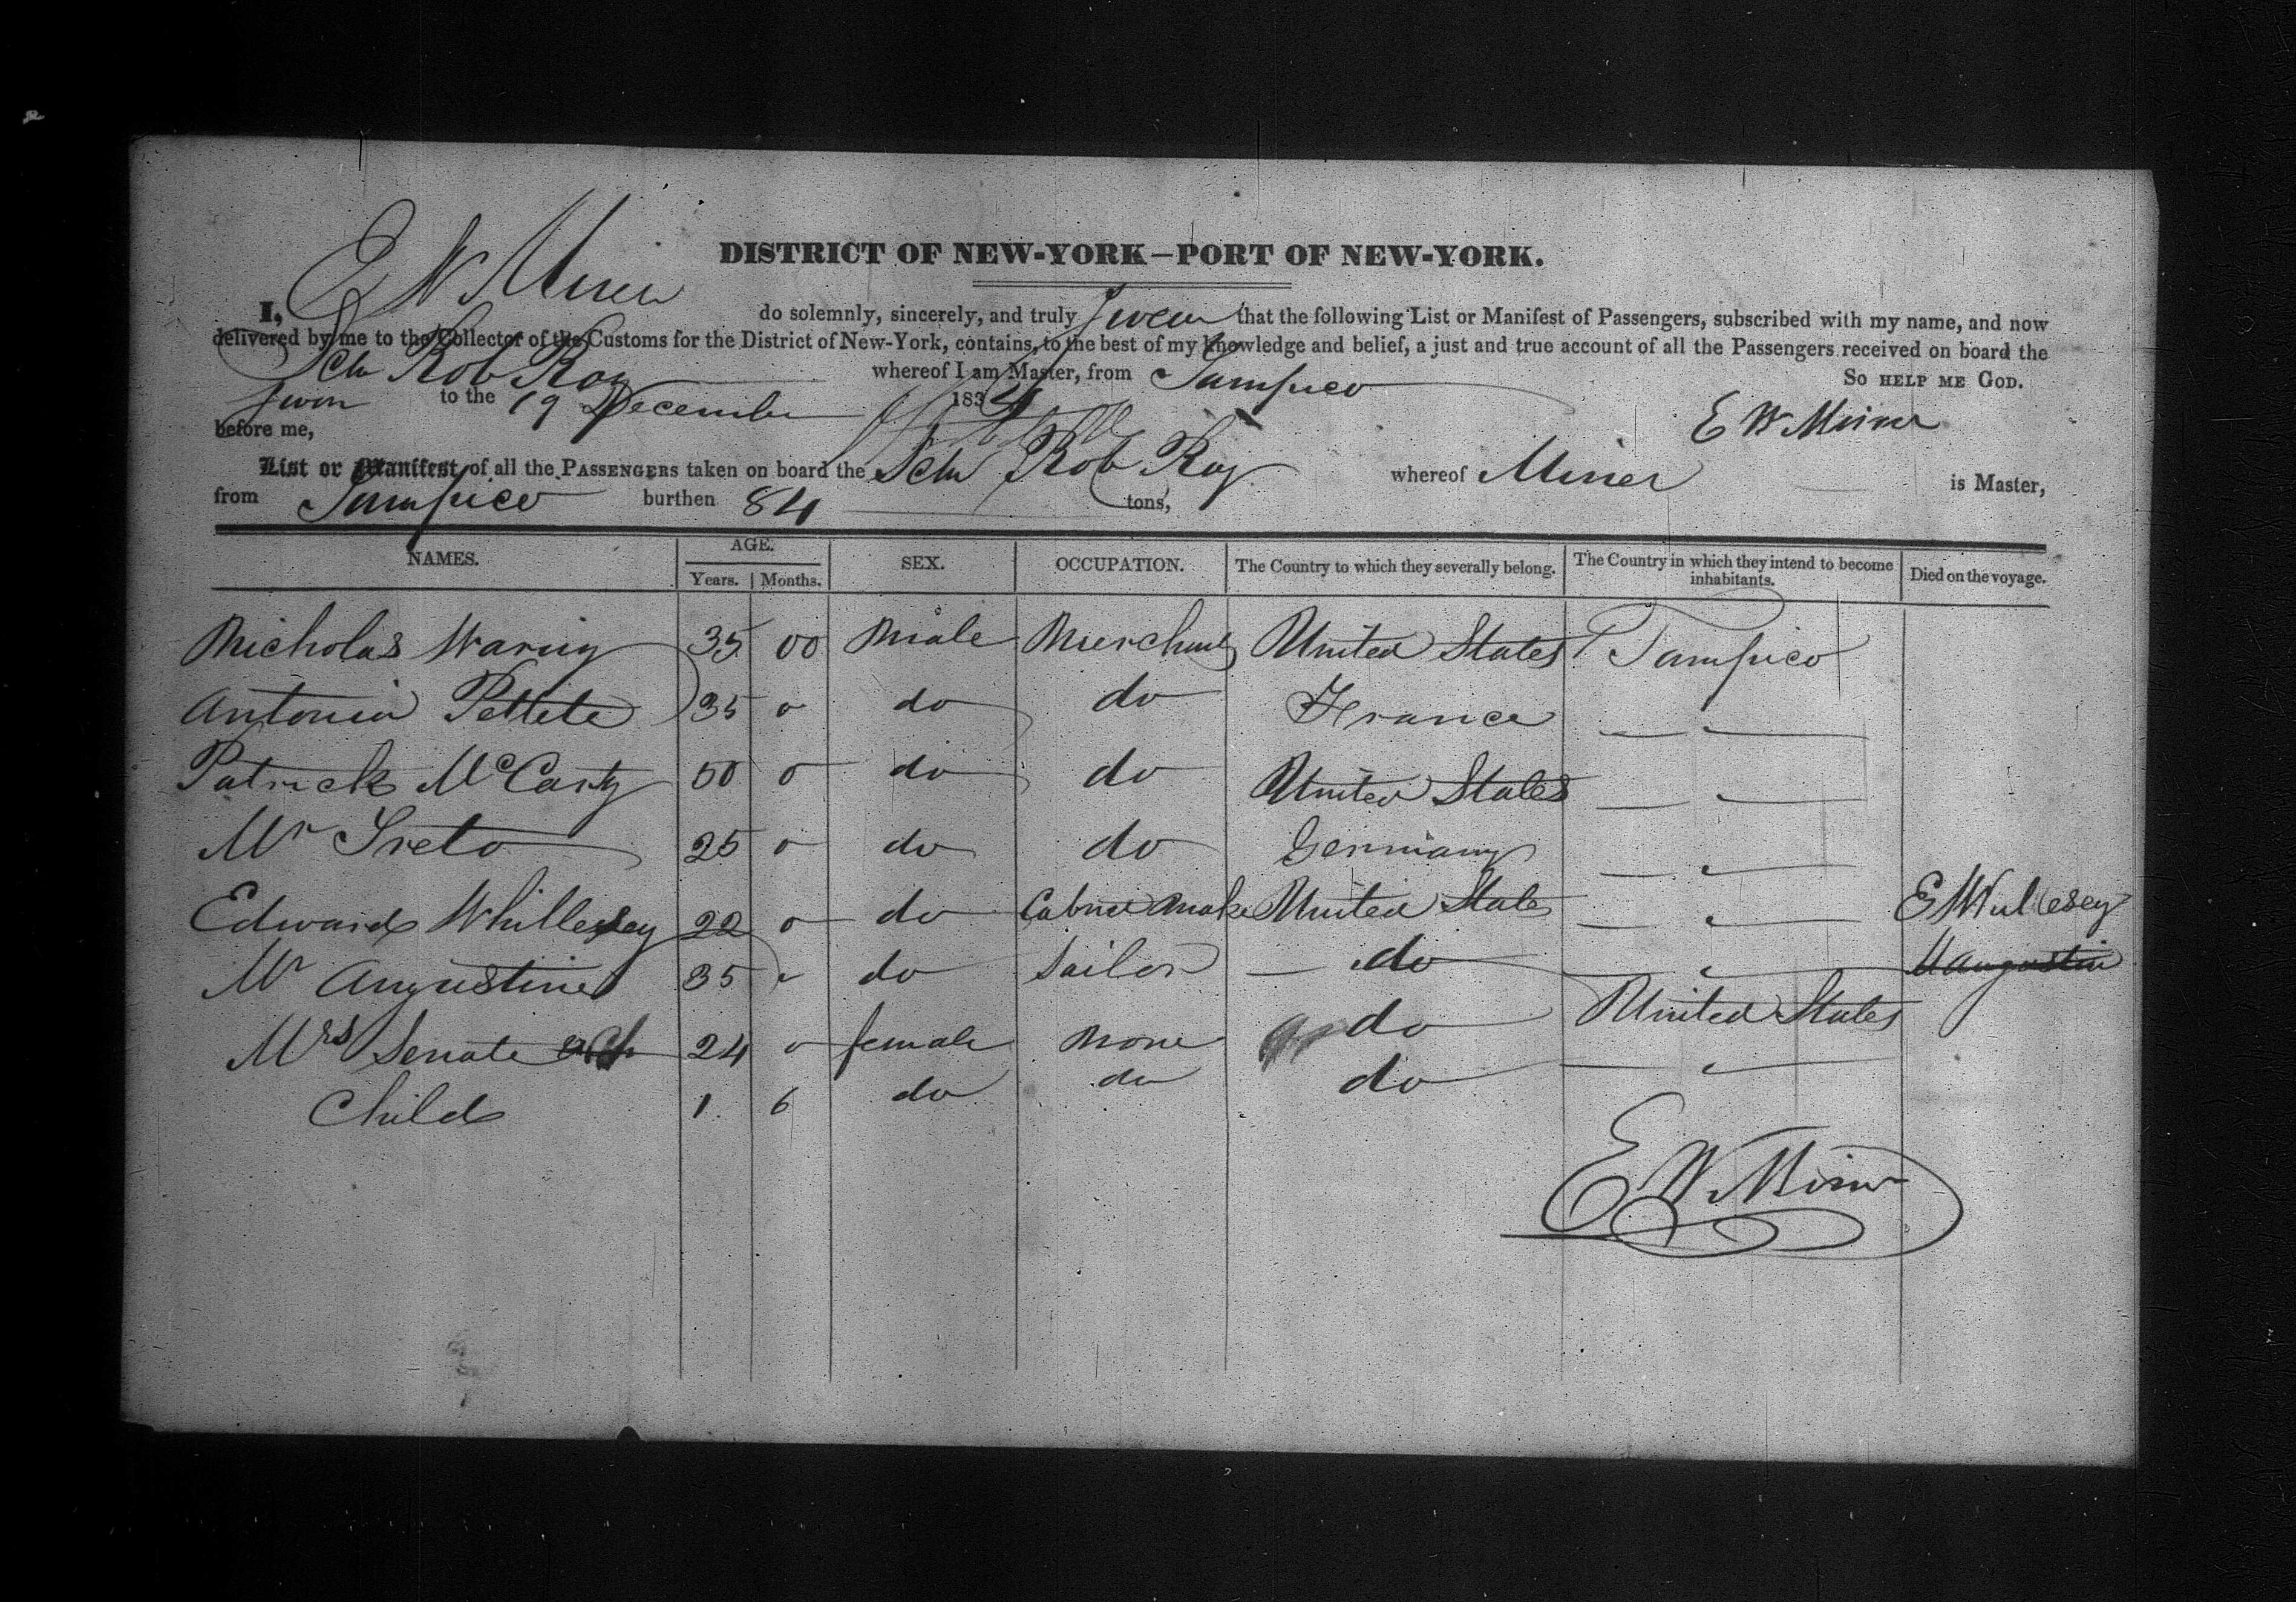 DISTRICT OF NEW-YORK—PORT OF NEW-YORK.
I, E W Miner do solemnly, sincerely, and truly swear that the following List or Manifest of Passengers, subscribed with my name, and now
delivered by me to the Collector of the Customs for the District of New-York, contains, to the best of my knowledge and belief, a just and true account of all the Passengers received on board the
Sch Rob Roy whereof I am Master, from Tampico So HELP ME GOD.
Sworn to the 19 December 1834 E W Miner
before me,
List or Manifest of all the PASSENGERS taken on board the Sch Rob Roy whereof Miner is Master,
from Tampico burthen 84 tons,
NAMES. AGE. Years. Months. SEX. OCCUPATION. The Country to which they severally belong. The Country in which they intend to become inhabitants. Died on the voyage.
Nicholas Waring 35 00 Male Merchant United States Tampico
Antonia Pettete 35 o do do France — "
Patrick McCarty 50 o do do United States — "
Mr Sreto 25 o do do Germany — "
Edward Whillesey 22 o do Cabnie Make United State — " E Whillesey
Mr Augustine 35 " do Sailor — do — " M Augustin
Mrs Senate 24 o female None do United States
Child 1 6 do do do — "
E W Miner